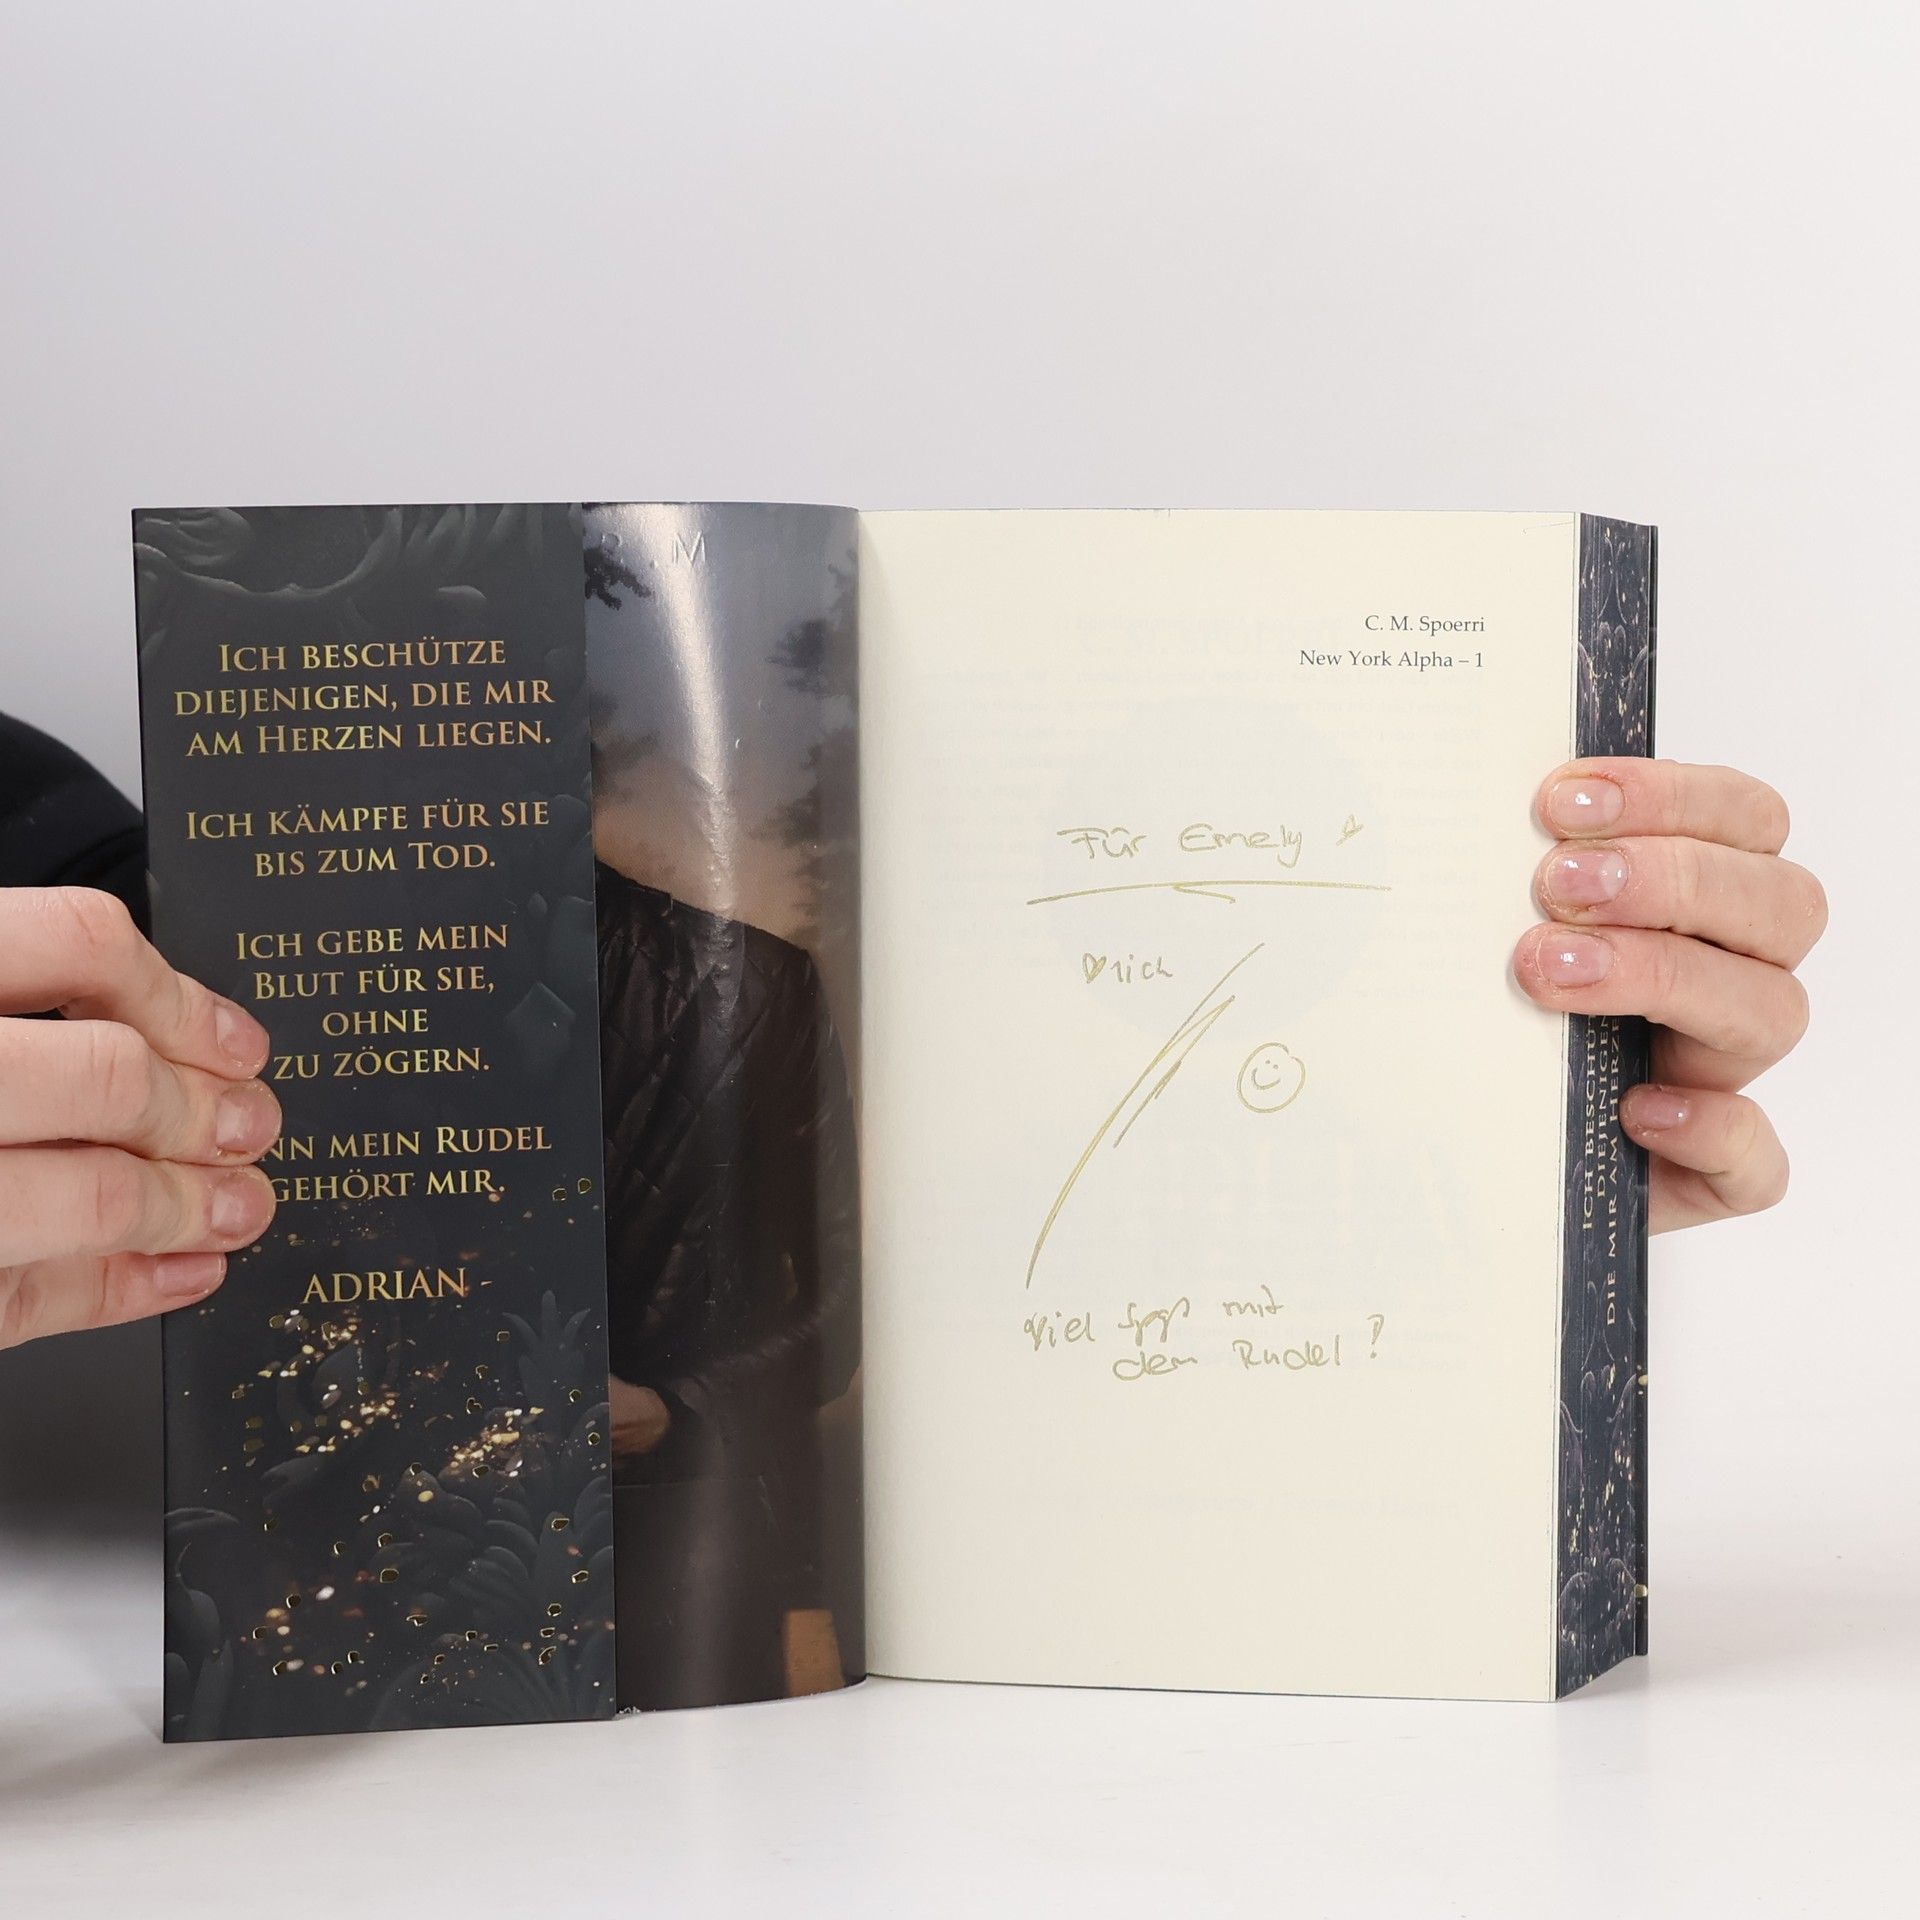 ICH BESCHÜTZE
DIEJENIGEN, DIE MIR
AM HERZEN LIEGEN.
ICH KÄMPFE FÜR SIE
BIS ZUM TOD.
ICH GEBE MEIN
BLUT FÜR SIE,
OHNE
ZU ZÖGERN.
NN MEIN RUDEL
GEHÖRT MIR.
ADRIAN -
. M
C. M. Spoerri
New York Alpha – 1
Für Emely
♡lich
Viel Spaß mit
dem Rudel!
ICH BESCHÜT
DIEJENIGEN
DIE MIR AM HERZE